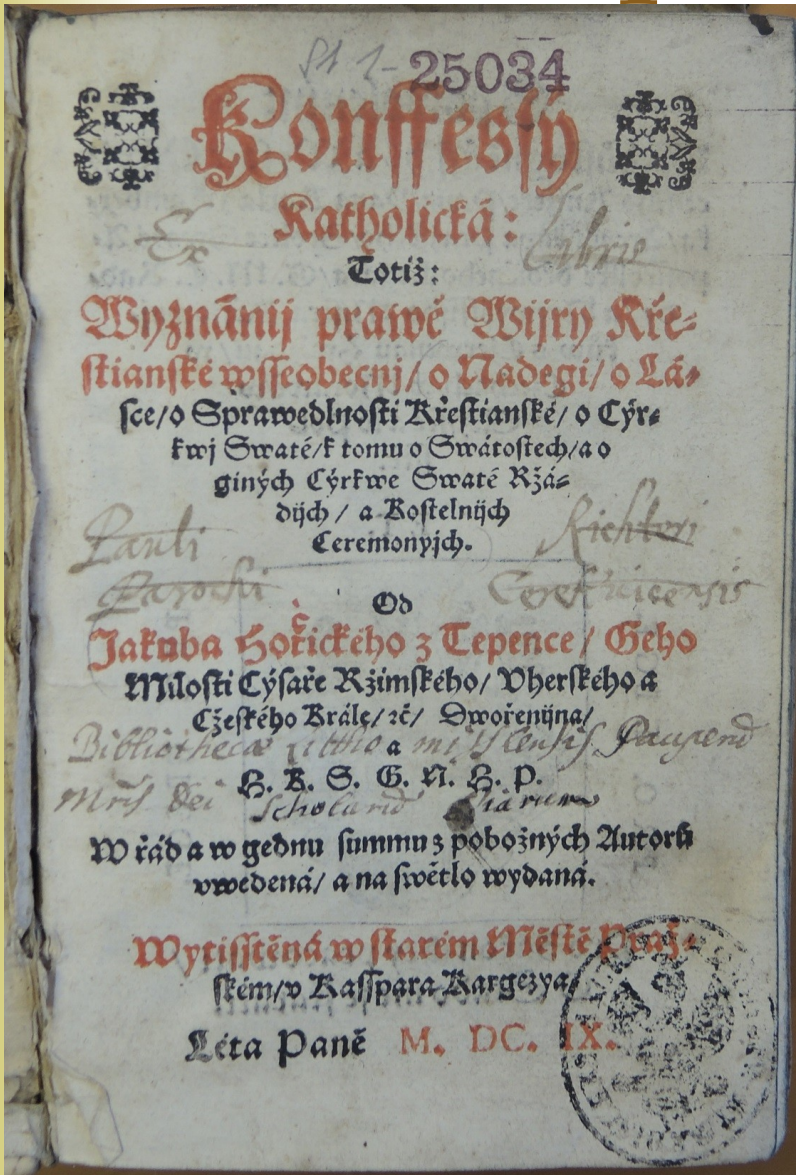 25034
Konffessý
Katholická:
Ex Libris
Totiž:
Wyznánij prawé Wijry Kře⸗
stianské wsseobecnj/ o Nadegi/ o Lá⸗
sce/ o Sprawedlnosti Křestianské/ o Cýr⸗
kwj Swaté/ k tomu o Swátostech/ a o
giných Cýrkwe Swaté Ržá⸗
dijch / a Kostelnijch
Ceremonyjch.
Pauli Richteri
Parochi
Od
Jakuba Hořčického z Tepence/ Geho
Milosti Cýsaře Ržimského/ Vherského a
Cžeského Krále/ ꝛč/ Dwořenijna/
a
Bibliothecæ
H. K. S. G. N. H. P.
Mr̃is Dei Scholarũ Piarum
W řád a w gednu summu z pobožných Autorů
vwedená/ a na swětlo wydaná.
Wytisstěná w starém Městě Praž⸗
ském/ v Kasspara Kargezya/
Léta Paně M. DC. IX.